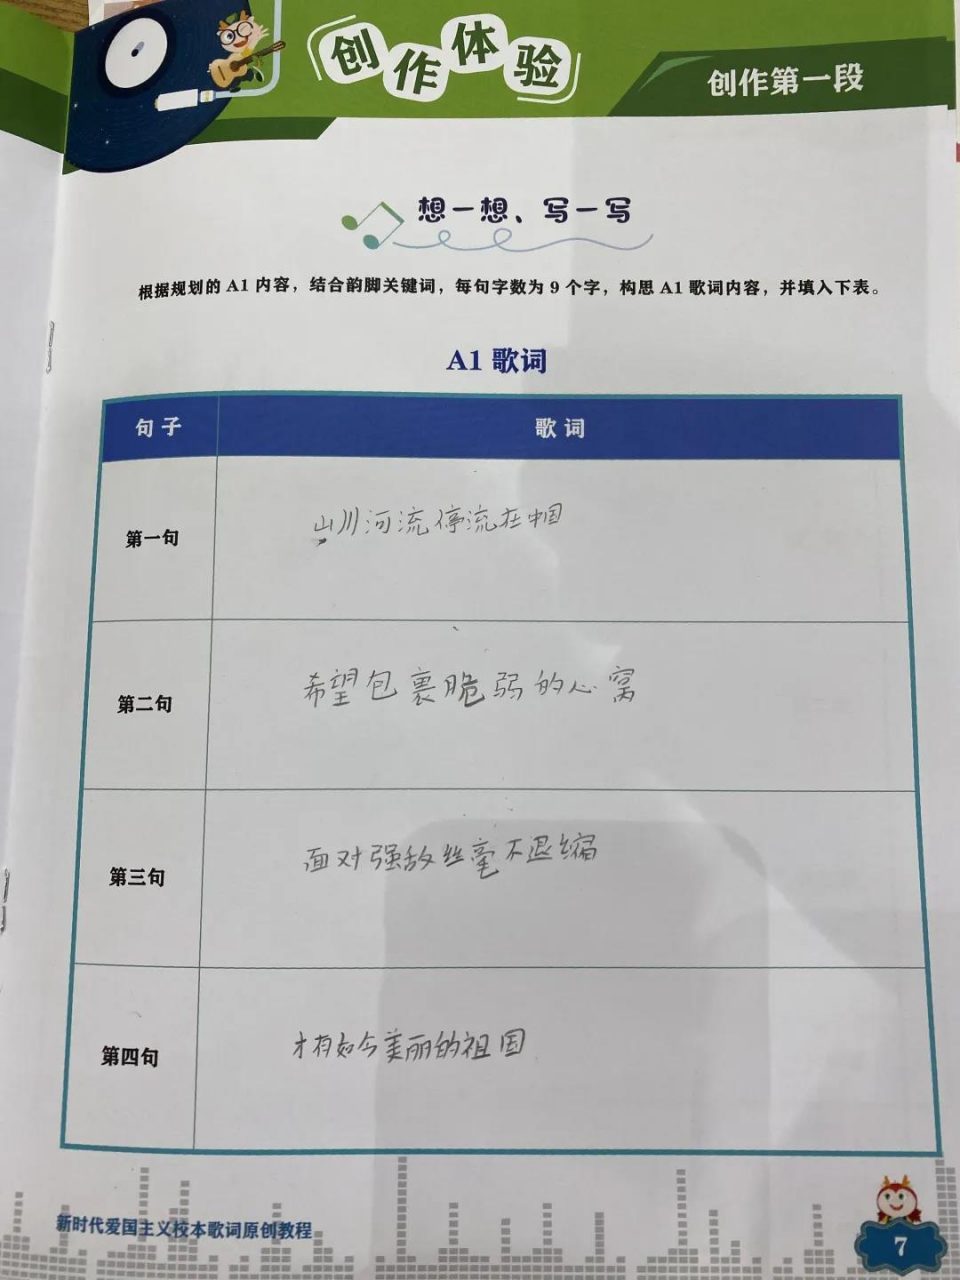 创作体验
创作第一段
想一想、写一写
根据规划的 A1 内容，结合韵脚关键词，每句字数为 9 个字，构思 A1 歌词内容，并填入下表。
A1 歌词
句子 歌词
第一句 山川河流停流在中国
第二句 希望包裹脆弱的心窝
第三句 面对强敌丝毫不退缩
第四句 才有如今美丽的祖国
新时代爱国主义校本歌词原创教程
7